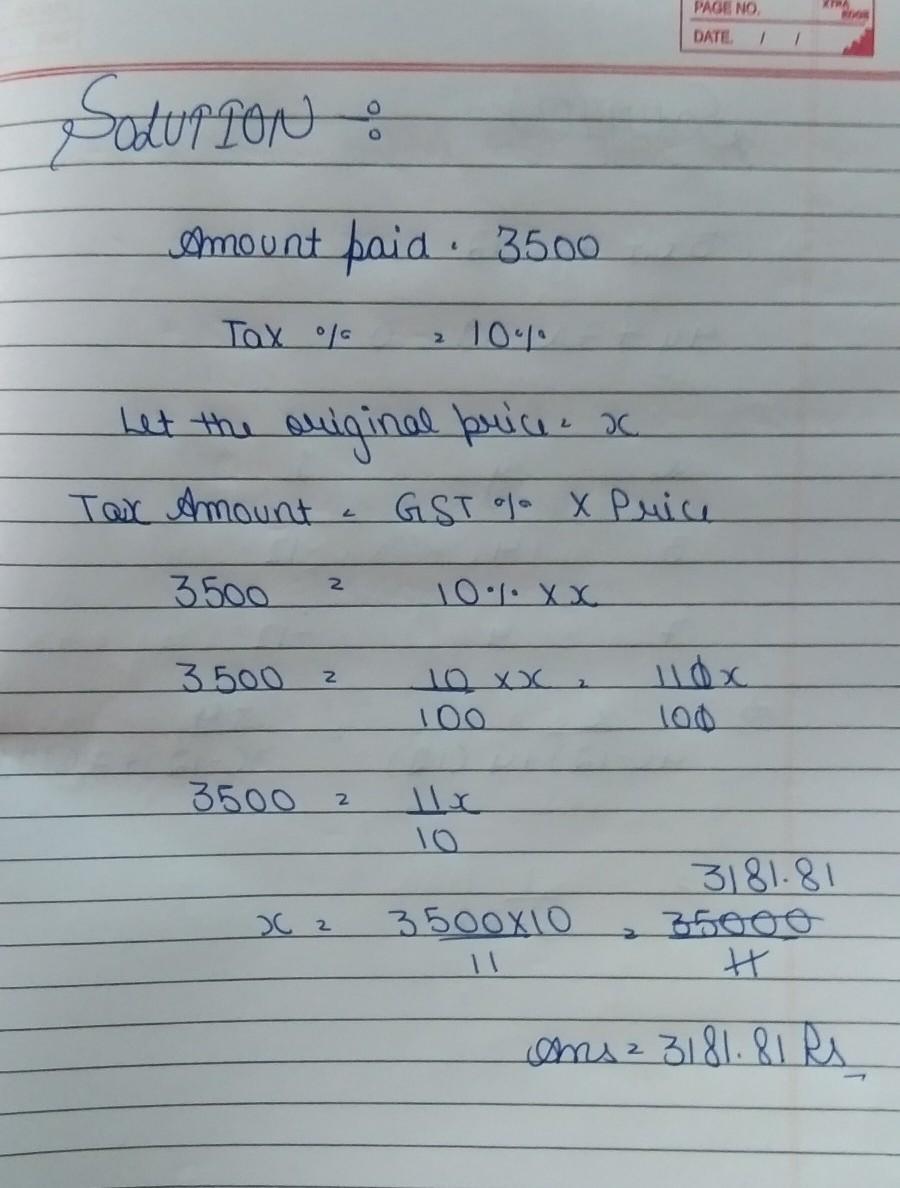 PAGE NO.
DATE / /
SOLUTION :
Amount paid = 3500
Tax % = 10%
Let the original price = x
Tax Amount = GST % X Price
3500 = 10% X x
3500 = 10/100 X x = 110x/100
3500 = 11x/10
3181.81
x = 3500X10/11 = 35000/11
Ans = 3181.81 Rs